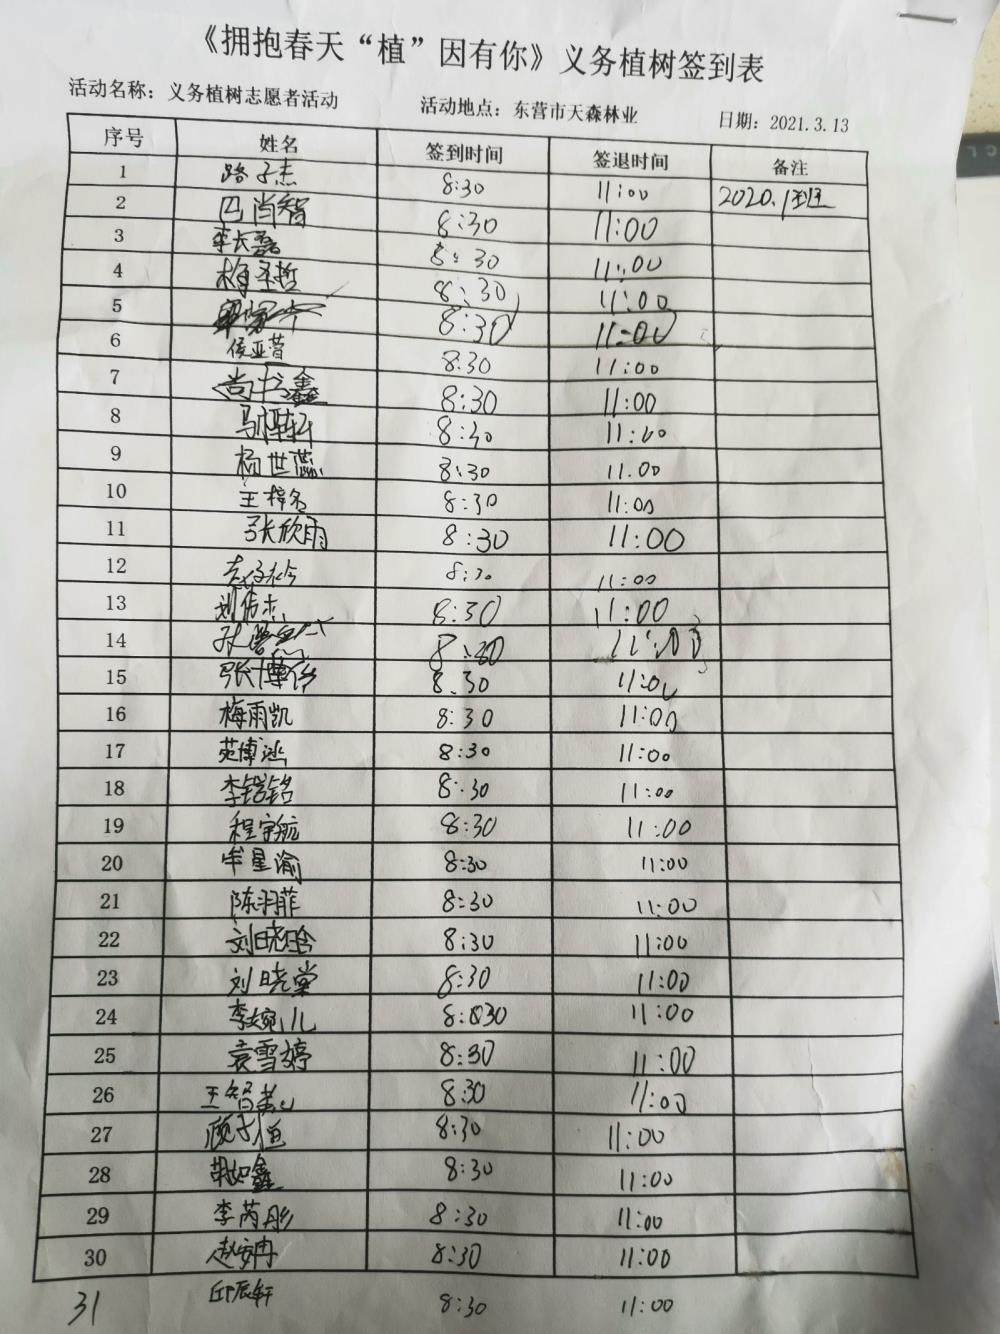 《拥抱春天“植”因有你》义务植树签到表
活动名称：义务植树志愿者活动 活动地点：东营市天森林业 日期：2021.3.13
序号 姓名 签到时间 签退时间 备注
1 路子杰 8:30 11:00 2020.1班
2 肖智 8:30 11:00
3 李长磊 8:30 11:00
4 梅圣哲 8:30 11:00
5 8:30 11:00
6 侯亚萱 8:30 11:00
7 尚书鑫 8:30 11:00
8 马梓轩 8:30 11:00
9 杨世蕊 8:30 11.00
10 王梓名 8:30 11:00
11 张欣雨 8:30 11:00
12 8:30 11:00
13 刘伟杰 8:30 11:00
14 8:30 11:00
15 张博 8.30 11:00
16 梅雨凯 8:30 11:00
17 苑博涵 8:30 11:00
18 李铭 8:30 11:00
19 程宇航 8:30 11:00
20 牟星谕 8:30 11:00
21 陈羽菲 8:30 11:00
22 刘晓晗 8:30 11:00
23 刘晓棠 8:30 11:00
24 李婉儿 8:030 11:00
25 袁雪婷 8:30 11:00
26 王智 8:30 11:00
27 顾子恒 8:30 11:00
28 胡如鑫 8:30 11:00
29 李芮彤 8:30 11:00
30 赵安冉 8:30 11:00
31 邱辰轩 8:30 11:00